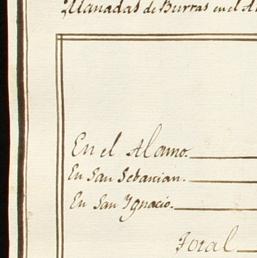 Manadas de Burras en el A
En el Alamo.
En San Sebastian.
En San Ygnacio.
Total